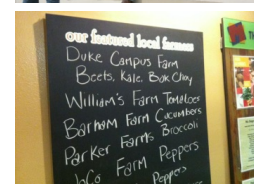 our featured local farmers
Duke Campus Farm
Beets, Kale, Bok Choy
William's Farm Tomatoes
Barham Farm Cucumbers
Parker Farms Broccoli
Farm Peppers
Peppers